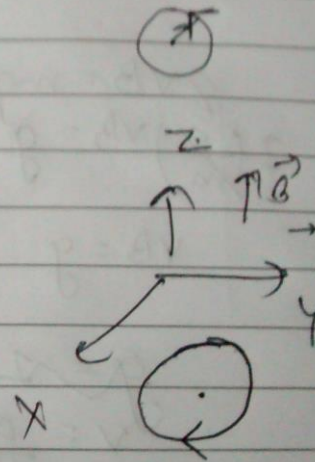 r
Z
B
Y
X